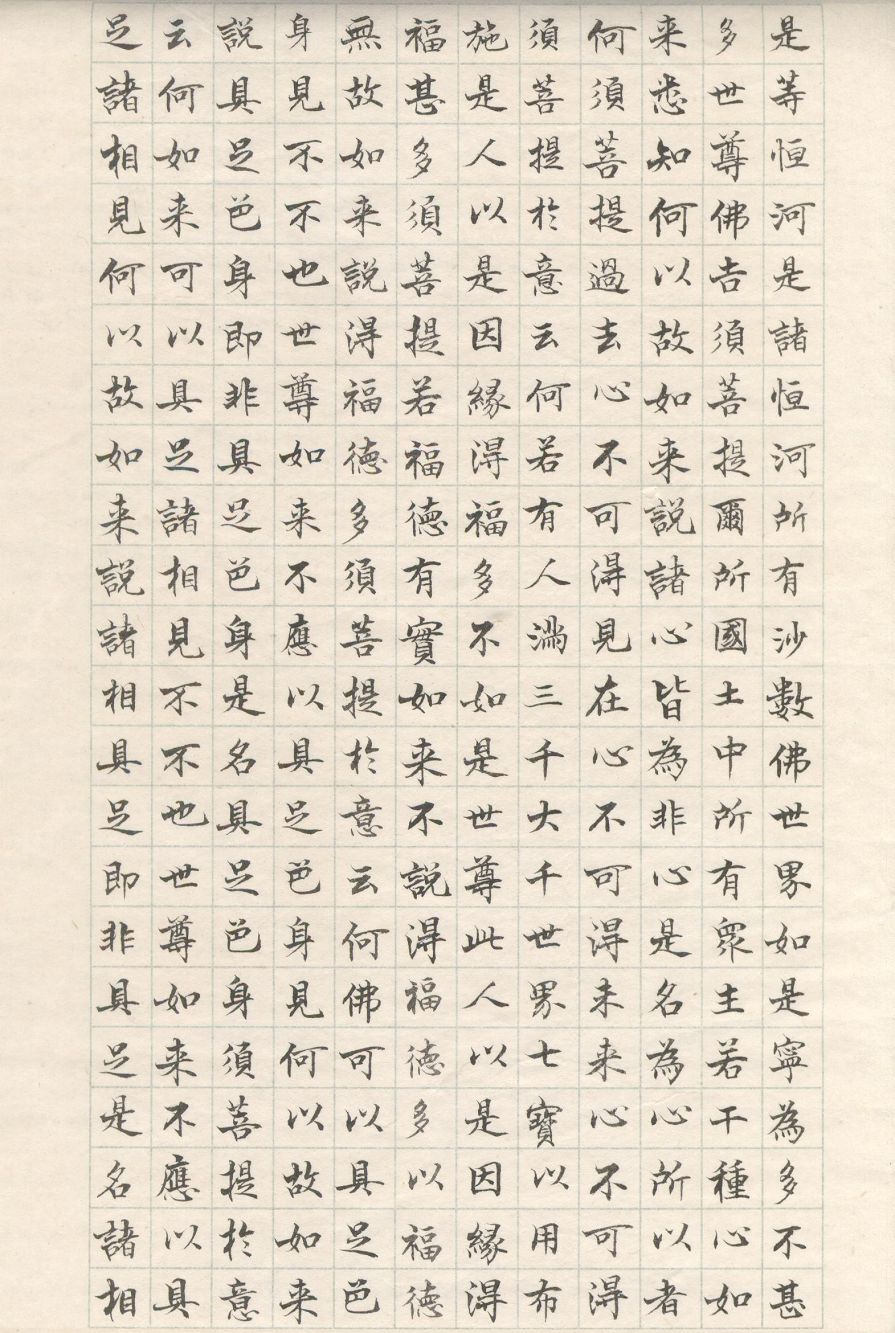 是等恒河是諸恒河所有沙數佛世界如是寧為多不甚
多世尊佛告須菩提爾所國土中所有眾生若干種心如
来悉知何以故如来說諸心皆為非心是名為心所以者
何須菩提過去心不可得見在心不可得未来心不可得
須菩提於意云何若有人滿三千大千世界七寶以用布
施是人以是因緣得福多不如是世尊此人以是因緣得
福甚多須菩提若福德有實如来不說得福德多以福德
無故如来說得福德多須菩提於意云何佛可以具足色
身見不不也世尊如来不應以具足色身見何以故如来
說具足色身即非具足色身是名具足色身須菩提於意
云何如来可以具足諸相見不不也世尊如来不應以具
足諸相見何以故如来說諸相具足即非具足是名諸相